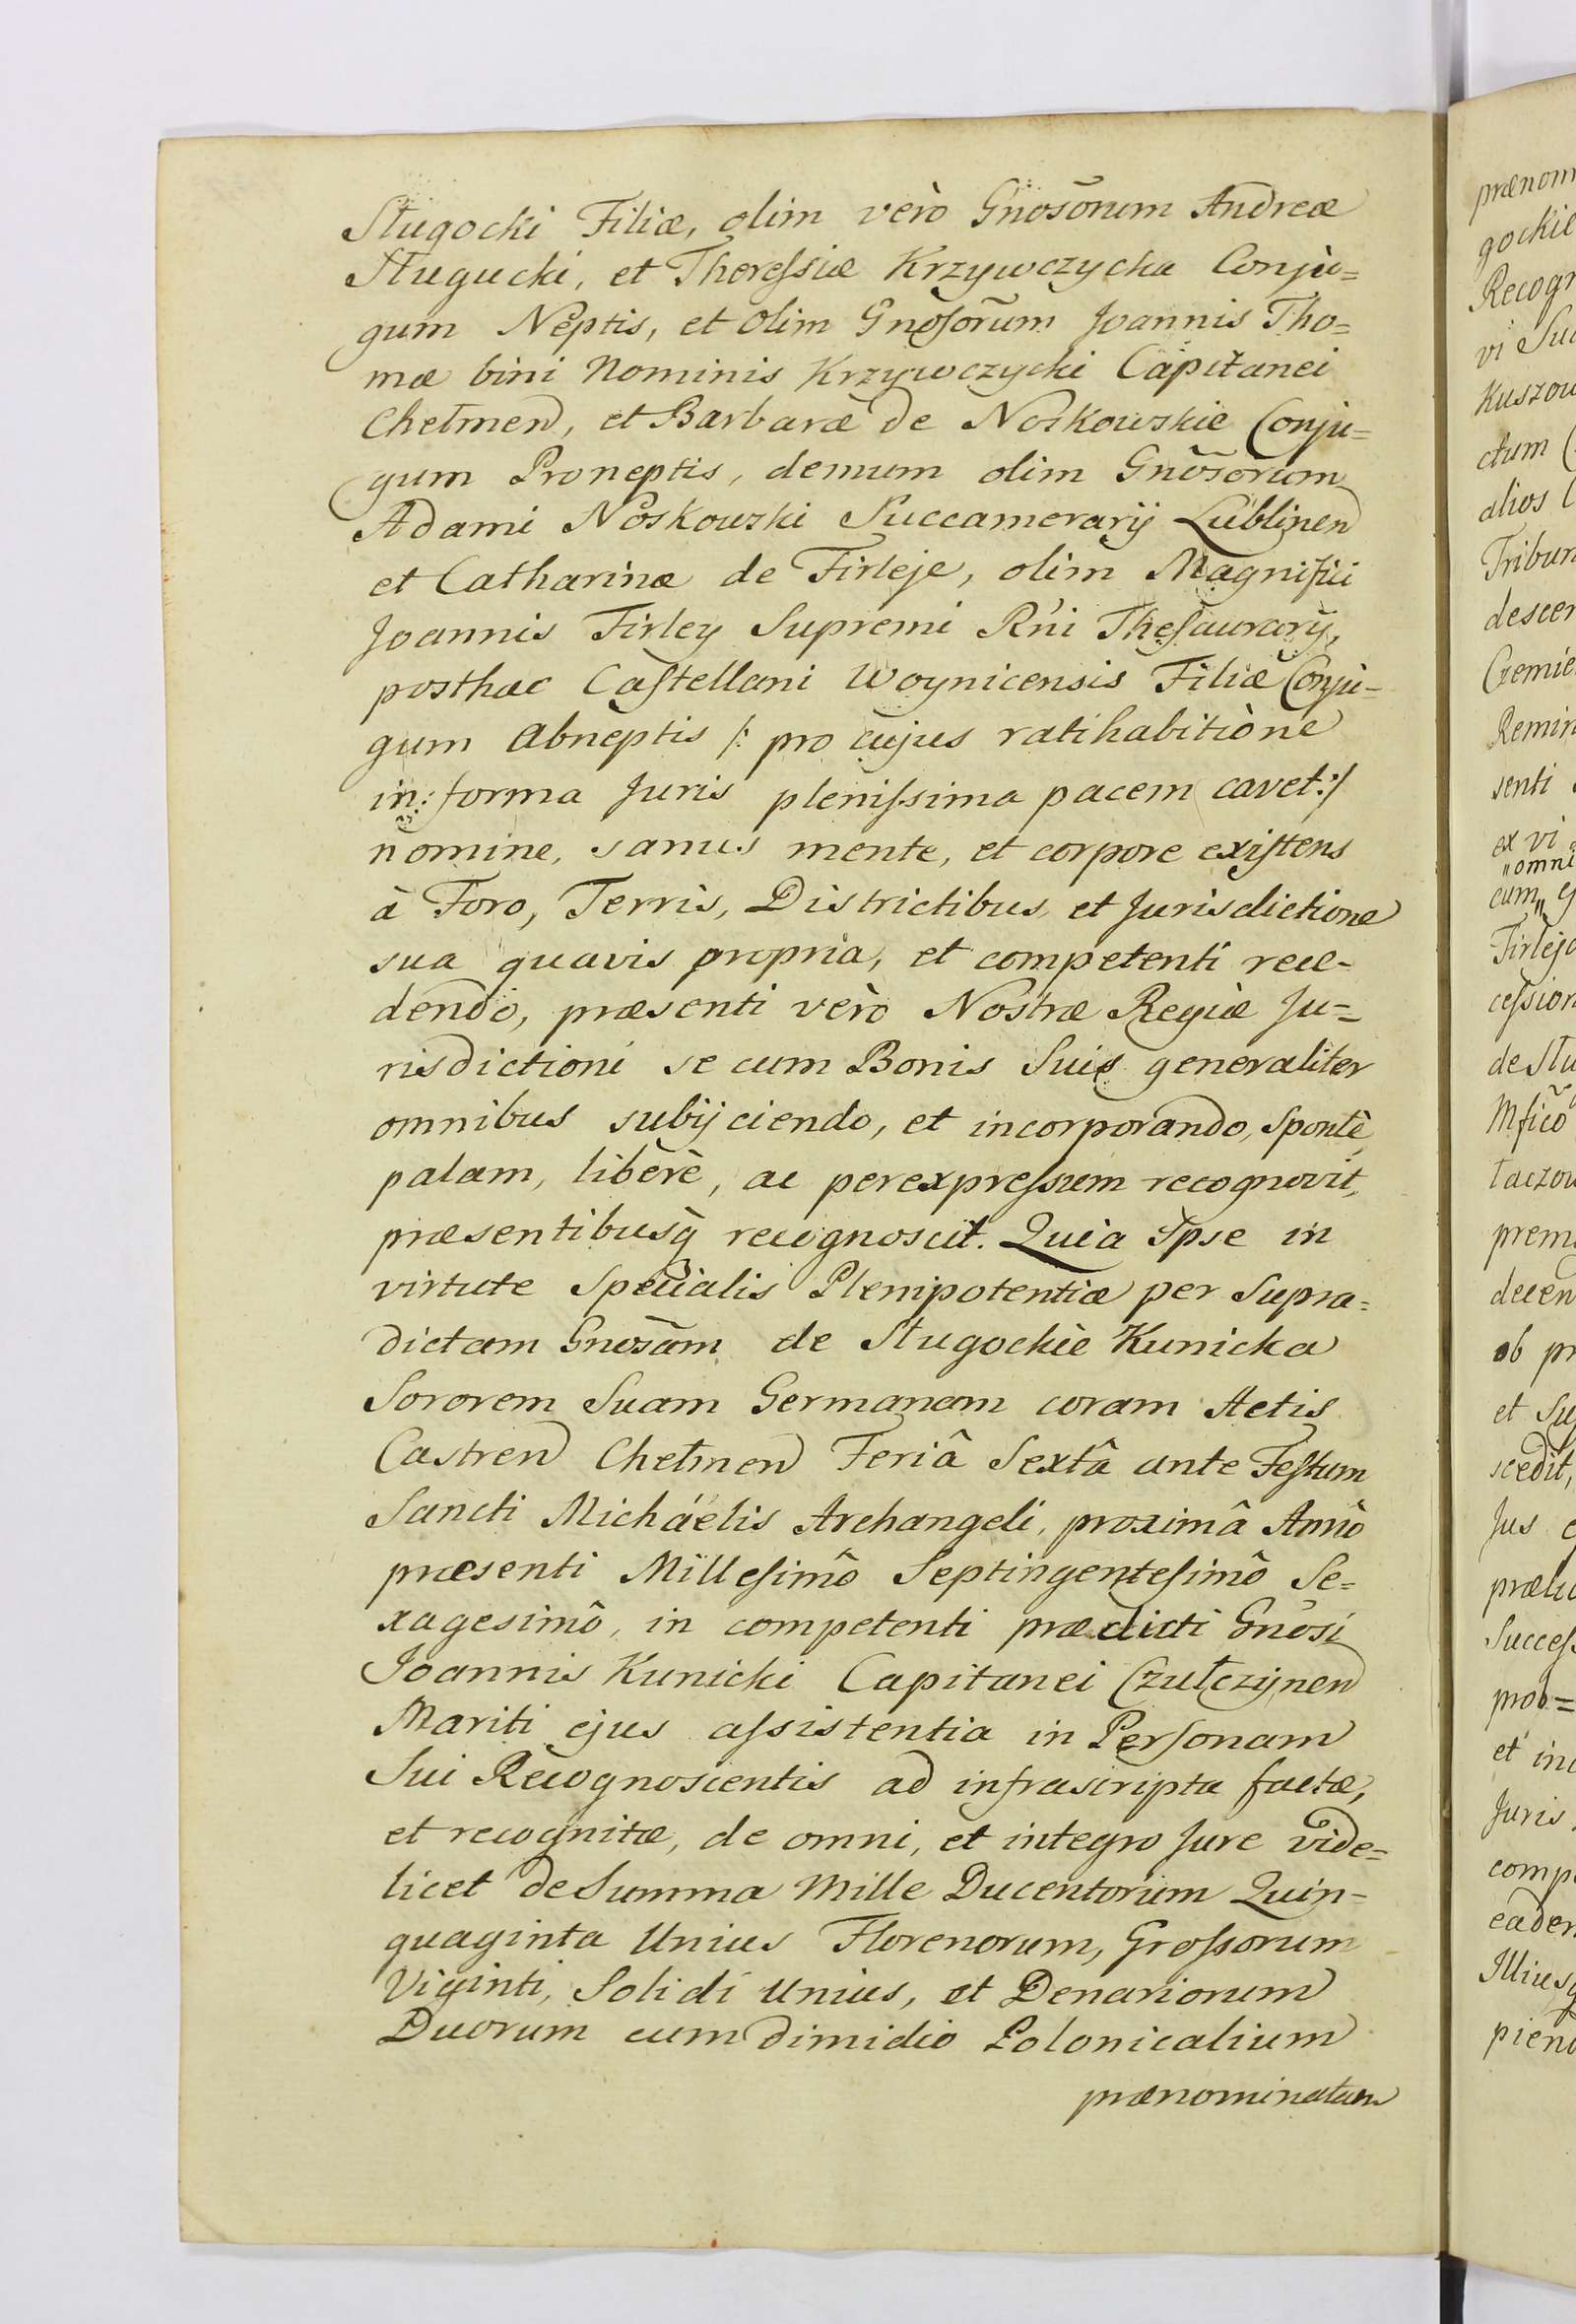 Sługocki Filiæ, olim verò Gnosõrum Andreæ
Sługucki, et Theressiæ Krzywczycka Conju=
gum Neptis, et olim Gnosõrum Joannis Tho=
mæ bini Nominis Krzywczycki Capitanei
Chełmen, et Barbaræ de Noskowskie Conju=
gum Proneptis, demum olim Gnõsorum
Adami Noskowski Succamerarij Lublinen
et Catharinæ de Firleje, olim Magnifici
Joannis Firley Supremi Rñi Thesaurarij,
posthac Castellani Woynicensis Filiæ Conju-
gum Abneptis /: pro cujus ratihabitiòne
in forma Juris plenissima pacem cavet :/
nomine, sanus mente, et corpore existens
à Foro, Terris, Districtibus, et Jurisdictione
sua quavis propria, et competenti rece-
dendo, præsenti verò Nostræ Regiæ Ju=
risdictioni se cum Bonis Suis generaliter
omnibus subijciendo, et incorporando, Spontè,
palam, liberè, ac perexpressum recognovit,
præsentibusq recognoscit. Quia Ipse in
virtute Specialis Plenipotentiæ per Supra=
dictam Gnosãm de Sługockie Kunicka
Sororem Suam Germanam coram Actis
Castren Chełmen Feriâ Sextâ ante Festum
Sancti Michaëlis Archangeli, proximâ Annô
præsenti Millesimô Septingentesimô Se=
xagesimô, in competenti prædicti Gnosi
Joannis Kunicki Capitanei Czułczynen
Mariti ejus assistentia in Personam
Sui Recognoscentis ad infrascripta factæ,
et recognitæ, de omni, et integro Jure vide=
licet de Summa Mille Ducentorum Quin-
quaginta Unius Florenorum, Grossorum
Viginti, Solidi unius, et Denariorum
Duorum cum dimidio Polonicalium
prænominatam
prænom
gockie
Recogn
vi Su
Kuszow
ctum
alios
Tribun
descen
Remin
senti
ex vi
"omni
cum"
Firlej
cession
de Słu
Mficõ
prem
decen
ob pr
et Su
scedit,
Jus
Success
prob=
et in
Juris
comp
eadem
Illiusq
piend